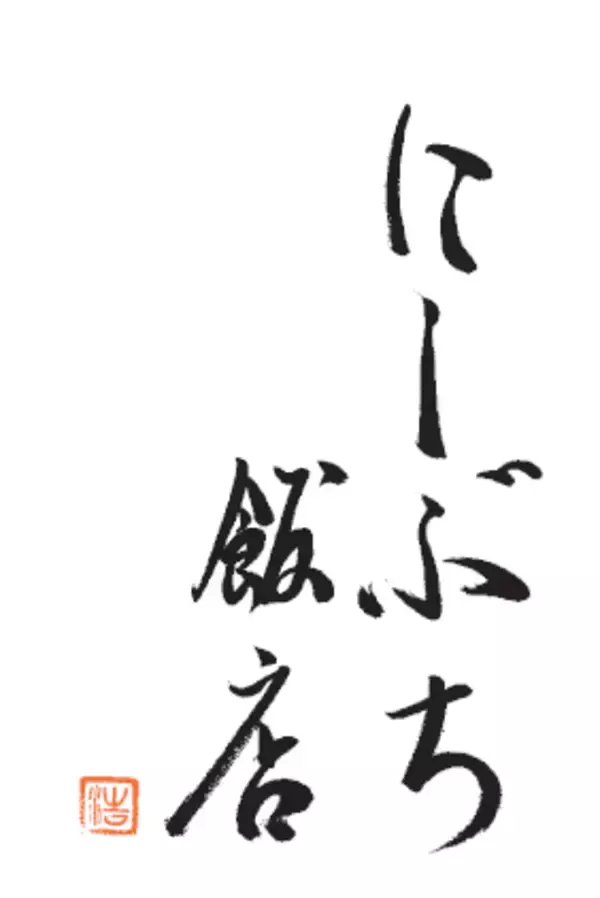 にしぶち
飯店
浩